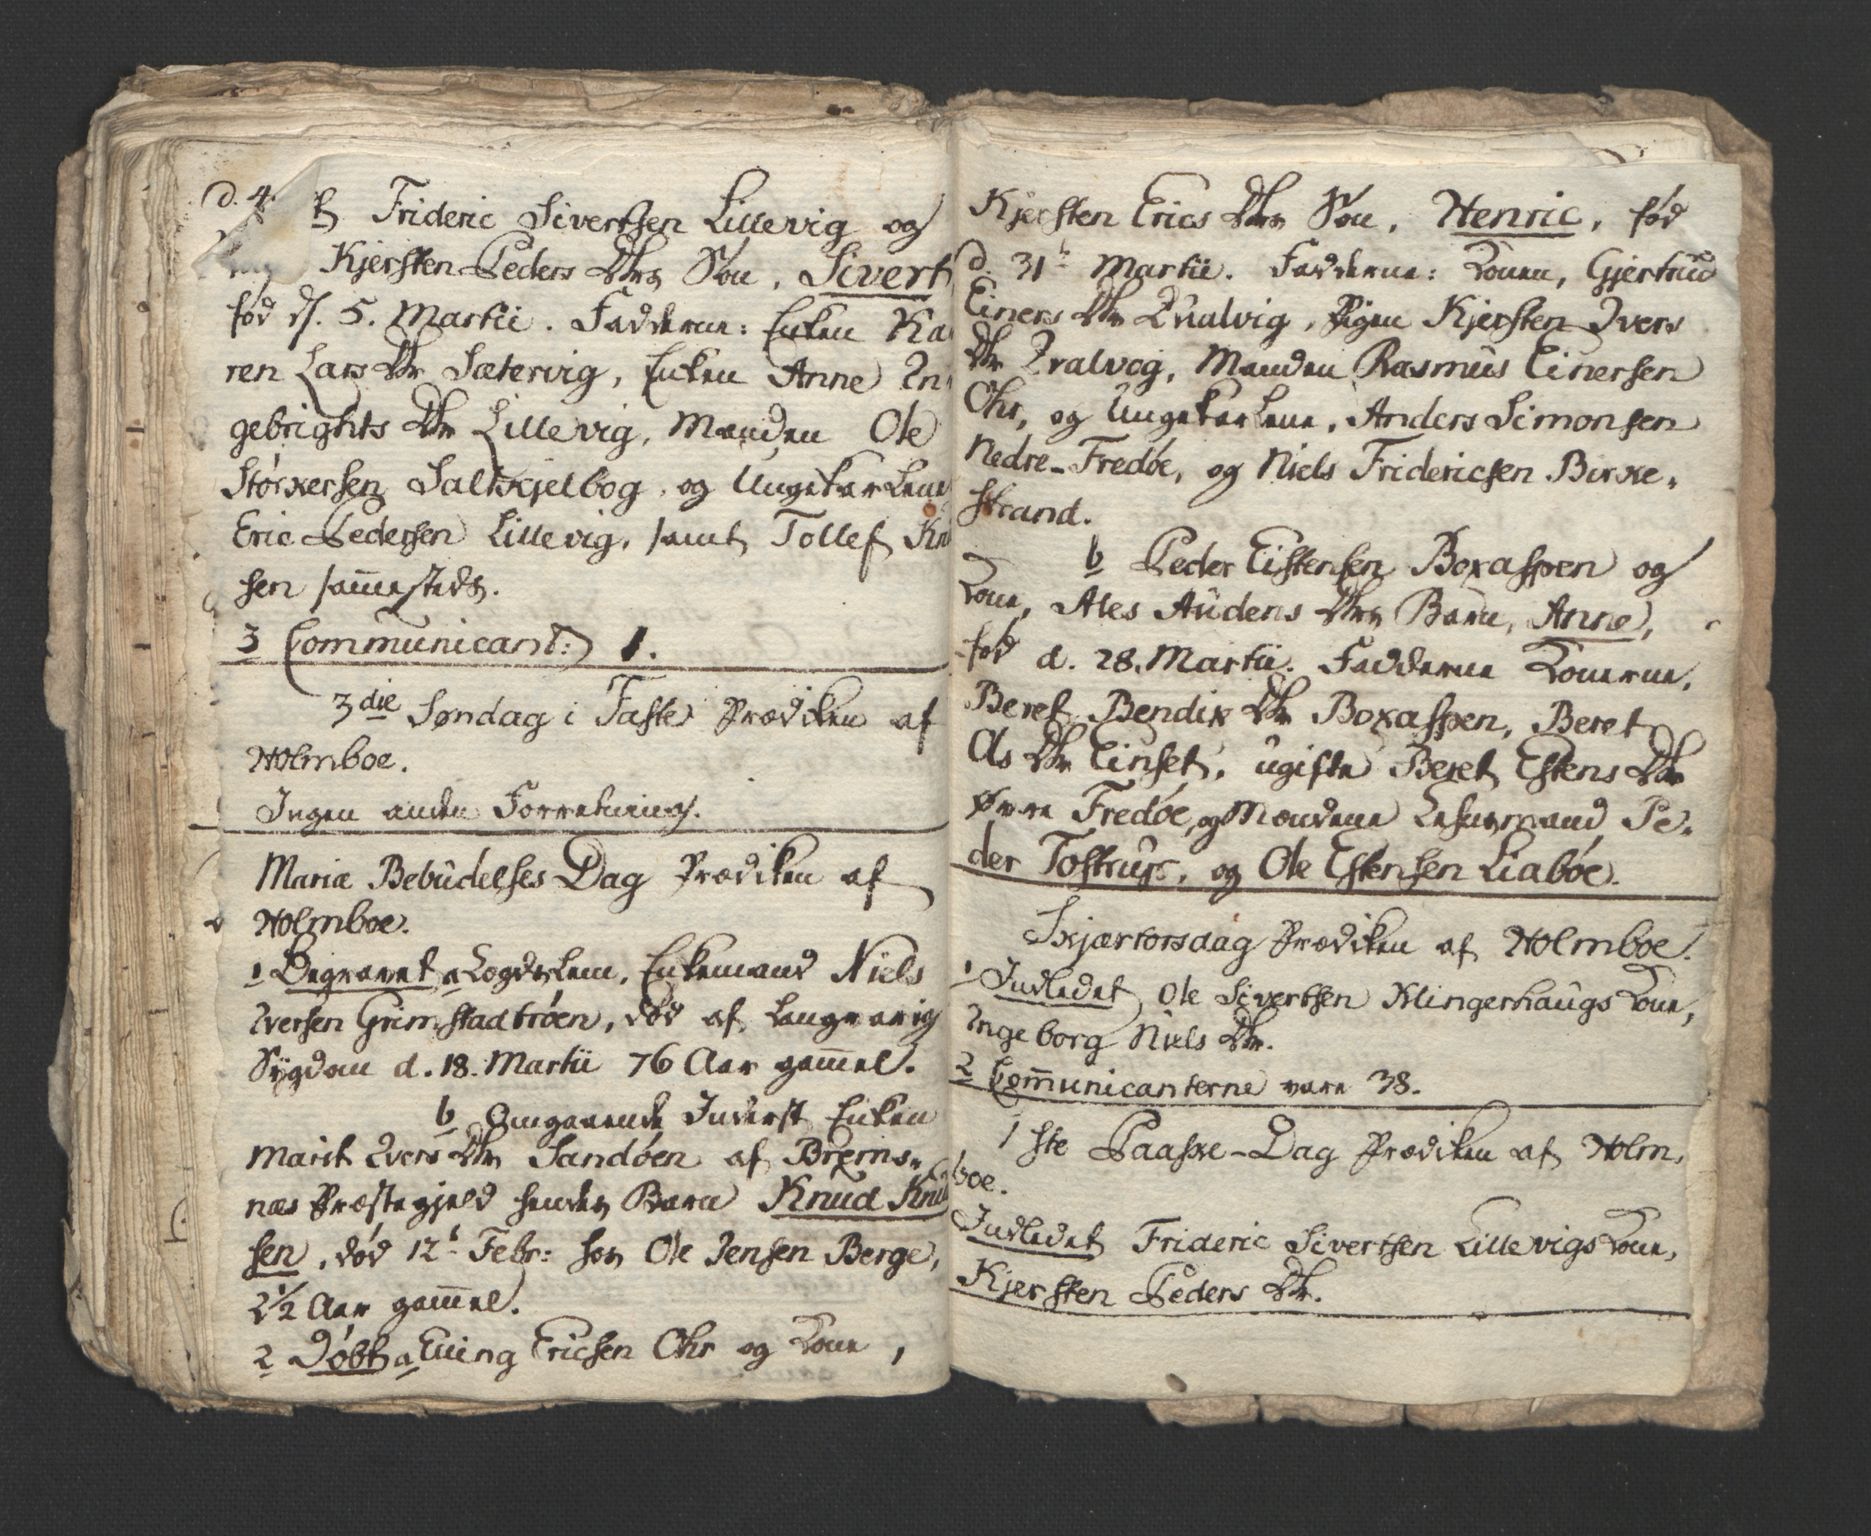 d. 4. b Frideric Sivertsen Lillevig og
Kjersten Peders Dtrs Søn, Sivert
fød d. 5. Martii. Fadderne: Enken Ka
ren Lars Dtr Sætervig, Enken Anne In
gebrights Dtr Lillevig, Manden Ole
Størkersen Saltkjelbog, og Ungekarlene
Eric Pedersen Lillevig, samt Tollef Knu
sen sam̄esteds.
3 Communicant: 1.
3die Søndag i Faste Prædiken af
Holmboe.
Ingen anden Forretning.
Mariæ Bebudelses Dag Prædiken af
Holmboe.
1 Begravet a Logdslem, Enkemand Niels
Iversen Grimstadtrøen, død af langvarig
Sygdom d. 18. Martii 76 Aar gam̄el.
b Omgaaende Inderst Enken
Marit Ivers Dtr Sandøen af Brems-
næs Præstegjeld hendes Barn Knud Knu
sen, død 12t Febr: hos Ole Jensen Berge,
2½ Aar gam̄el.
2 Døbt a Ening Ericsen Ohr og Kone,
Kjersten Erics Dtrs Søn, Henric, fød
d. 31t Martii. Fadderne: Konen, Gjertrud
Einers Dtr Qualvig, Pigen Kjersten Ivers
Dtr Qvalvog, Manden Rasmus Einersen
Ohr, og Ungekarlene, Anders Simonsen
Nedre-Fredøe, og Niels Fridericsen Birke-
strand.
b Peder Eistensen Boxaspen og
Kone, Ales Audens Dtrs Barn, Anne,
fød d. 28. Martii. Fadderne Konerne,
Beret Bendix Dtr Boxaspen, Beret
Ols Dtr Einset, ugifte Beret Estens Dtr
Øvre Fredøe, og Mændene Lehnsmand Pe-
der Tostrup, og Ole Estensen Liabøe.
Skjærtorsdag Prædiken af Holmboe.
1 Indledet Ole Sivertsen Klingerhaugs Kone,
Ingeborg Niels Dtr.
2 Com̄unicanterne vare 38.
1ste Paaske-Dag Prædiken af Holm-
boe.
Indledet Frideric Sivertsen Lillevigs Kone,
Kjersten Peders Dtr.